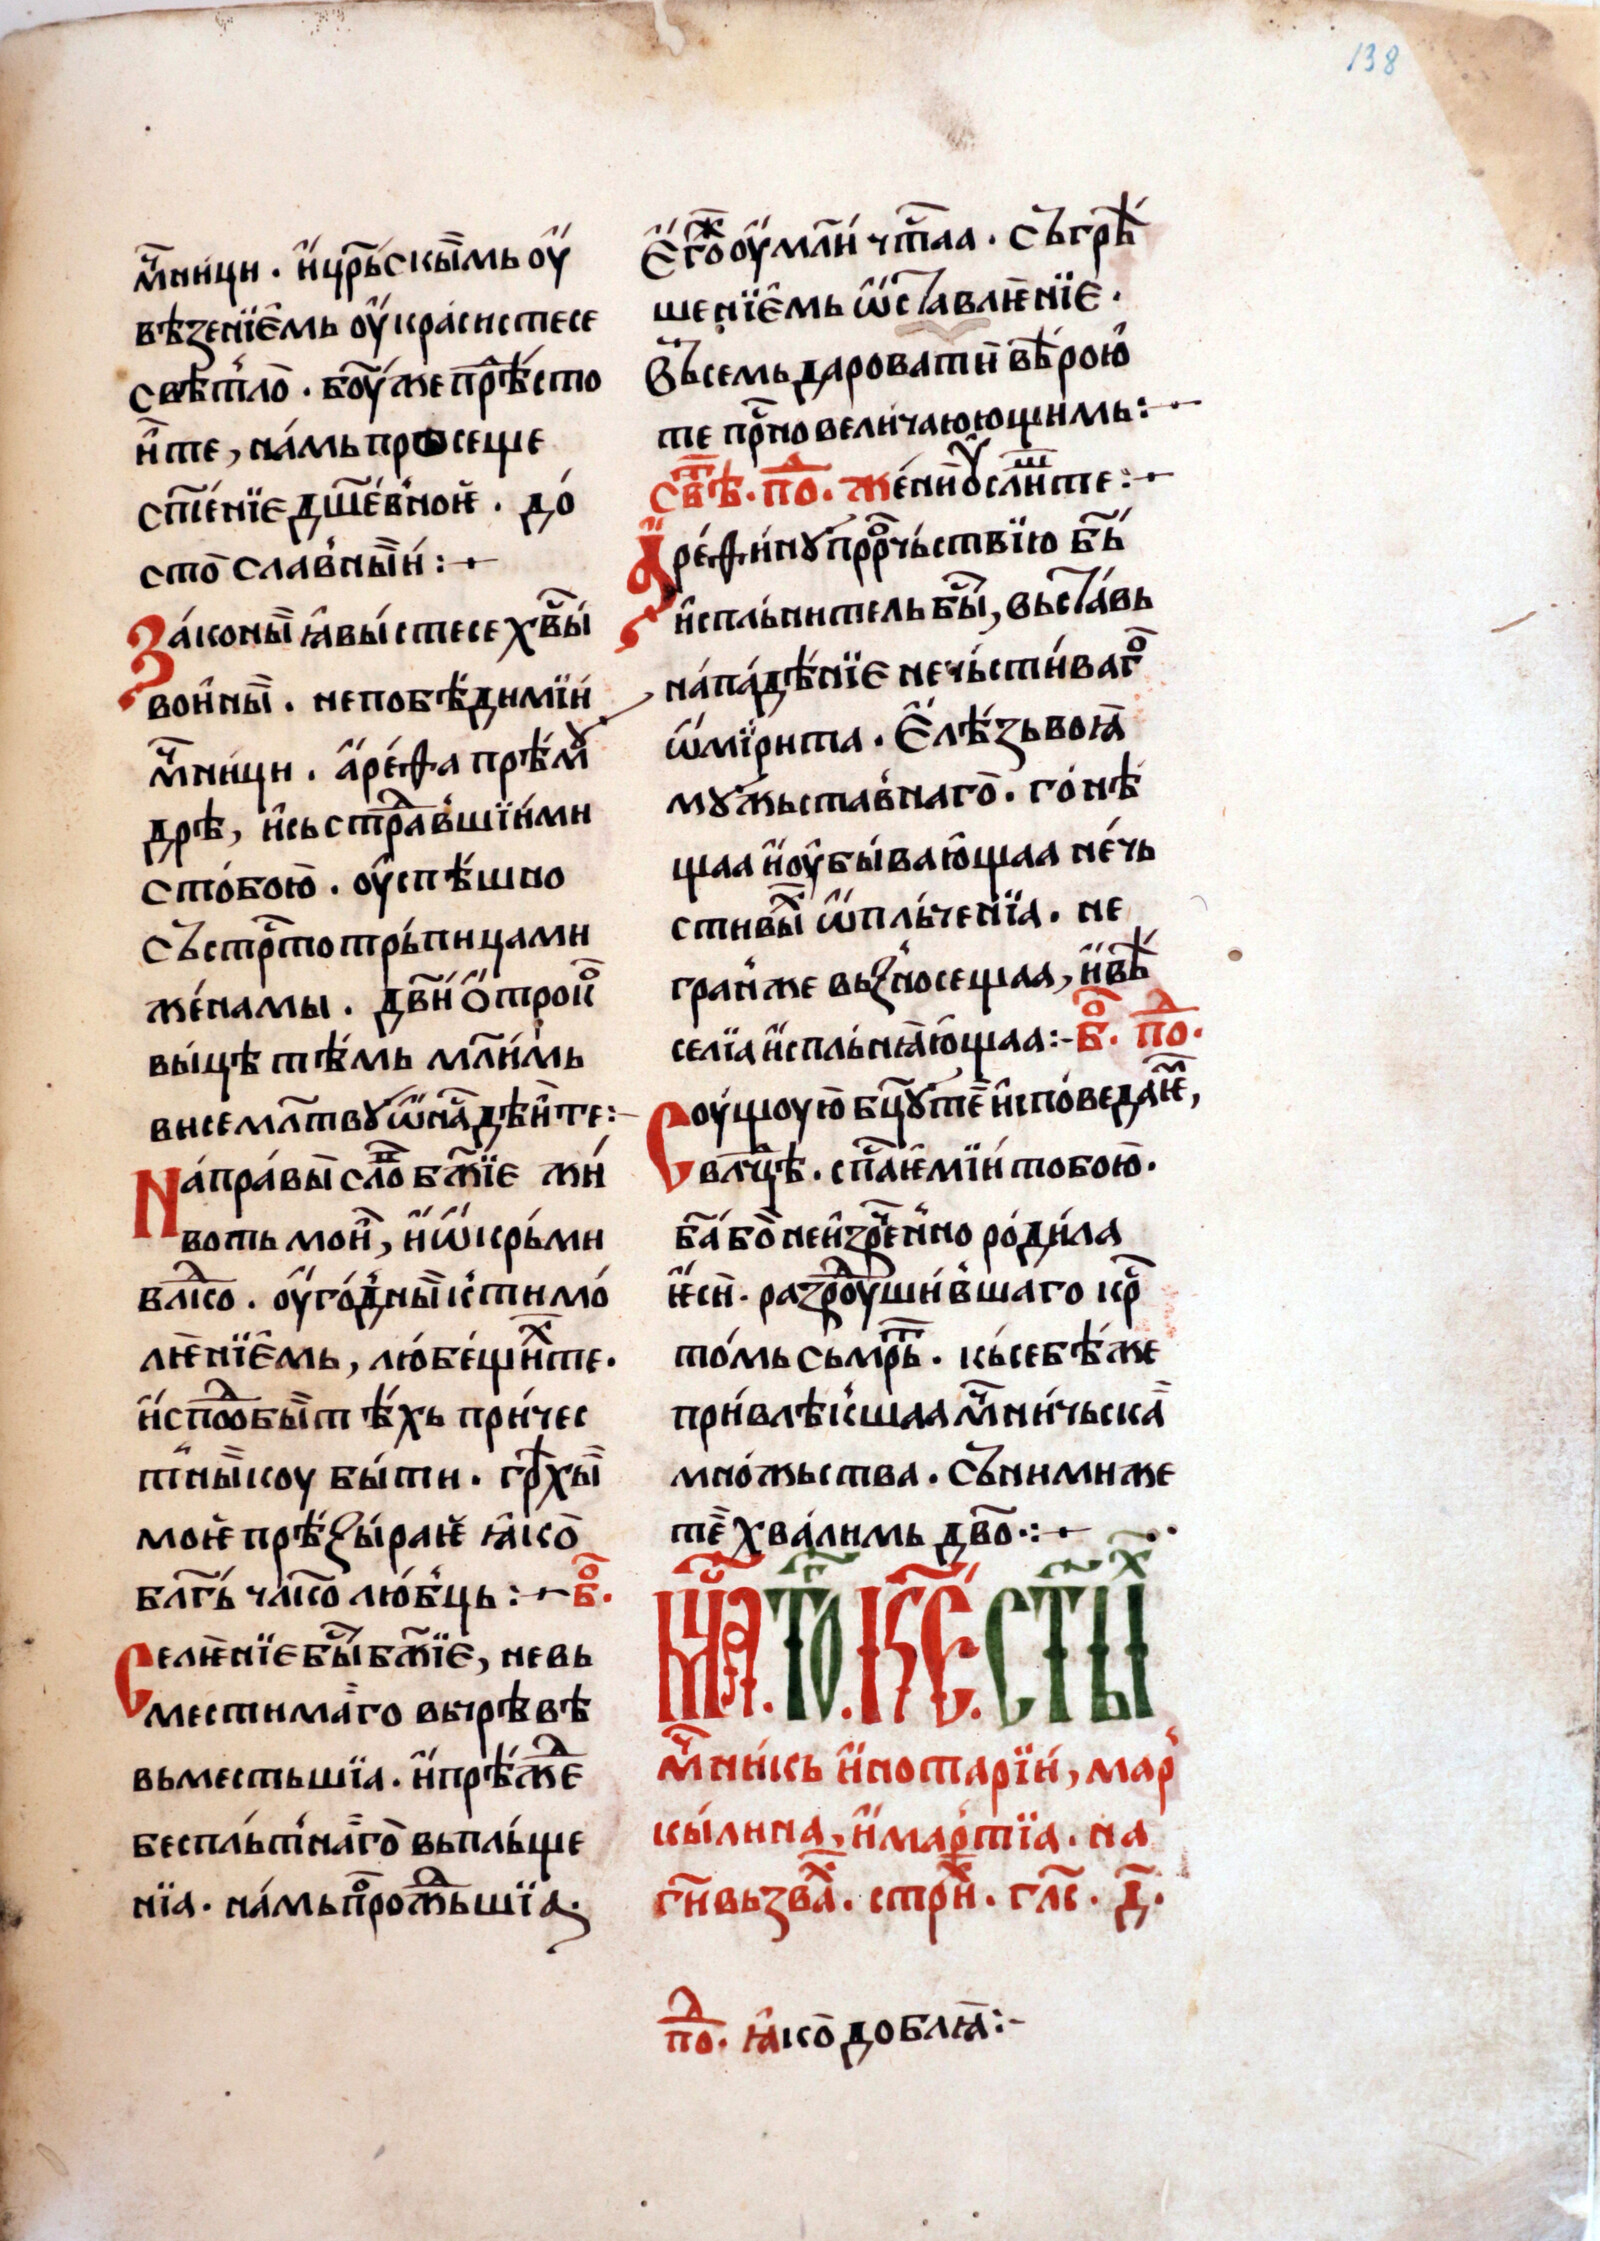 138
м҃чн́ици . и҆ цр҃ьскы̏мь оу҆
вѣзенїе҆мь оу҆кра́систесе
свѣт́ло̏ . бо҃у же прѣ́сто
и҆те , на́мь просеще
сщ҃е́нїе дш҃е́вноѥ . до́
сто̏славны̏и :~
За́коны̏ ꙗ҆вы́стесе хв҃ы́
вои҆ны̏ . непобѣ́димїи
м҃чн́ици . а҆ре́ѳа прѣ́мꙋ
дрѣ , и҆сьстра́давшїими
сто́бою̏ . оу҆спѣ́шно
състр҃то трь́пицами
же́намы . двⷭ҇и ѻ҆трокⷪ
вы́цѣ тѣ́мь мл҃и́мь
висе мл҃твꙋ ѿ наⷭ҇дѣи҆те :~
На́правы̏ сло́во бж҃їе жи́
воть мои҆ , и҆ ѡ҆крь́ми
влⷣко . оу҆го́дны̏ќ ти мо́
лѥнїе҆мь , лю́бещи́хте .
и҆ спⷣобы̏ тѣ́хь при́чес
т́ны̏коу бы́ти . грѣ́хы̏
моѥ прѣꙁы́раѥ ꙗ҆ко̏
бл҃гь́ чл҃ко лю́бць :~ бⷪ҇ .
Селѥнїе бы́ бж҃їе , невь
мести́ма̏го вьчрѣвѣ
вьместьшїа . и҆ прѣ́жⷣе
бесплъ́т́на̏го̏ вьплъ́ще
нїа . на́мь прⷪомь́шїа .
Е҆го́же оу҆мли́ чт҃аа . съгрѣ́
шенїе҆мь ѡ҆ставлѥ́нїе .
Въсемь дароватѝ вѣ́рою̏
те прⷭ҇но вели́чающимь :~
свⷮѣ . поⷣ . же́ни оу҆слы́шите :~
А҆ре́ѳи́нꙋ прⷪ҇рчьствїю бь҃і
и҆спль́нитель бы́ , вьста́вь
на́па́дѣ́нїе нечь́сти́вагⷪ
ѡ҆мїрита . Е҆лѣ́зьвоꙗ̏
мꙋ́жьстав́наго̏ . го́нѣ
щаа и҆ оу҆бы́ваю̏щаа не́чь
стивы́хь ѡ҆пль́ченїа . не
граи́же вьꙁно́сещаа , и҆ вѣ́
селїа и҆спль́нꙗ̏ю̏щаа :~ бⷪ҇ . поⷣ .
Соу́щоую бц҃ꙋ тѐ и҆спо́ведаѥ̏м ,
вл҃чцѣ . сп҃са́ѥмїи тобою̏ .
ба҃ бо̏ неи҆зре́чен́но ро́ди́ла
ѥ҆сѝ . разⷣроуши́вшаго кр҃
то́мь сьмрⷮь́ . кь́себѣ́же
при́влѣќшаа м҃чни́чьска̏
мно́жьства . съними же
тѐ хва́лимь дв҃о :~
Мⷭ҇ца . то . к҃е . ст҃ыⷯ
м҃чн́икь и҆ нотарїи́ , мар́
кы́лина , и҆ мар́тїа . на
гѝ вьзваⷯ . стрⷯи . глⷭ҇ . д҃ .
поⷣ . ꙗ҆ко̏ доблꙗ̏ :~